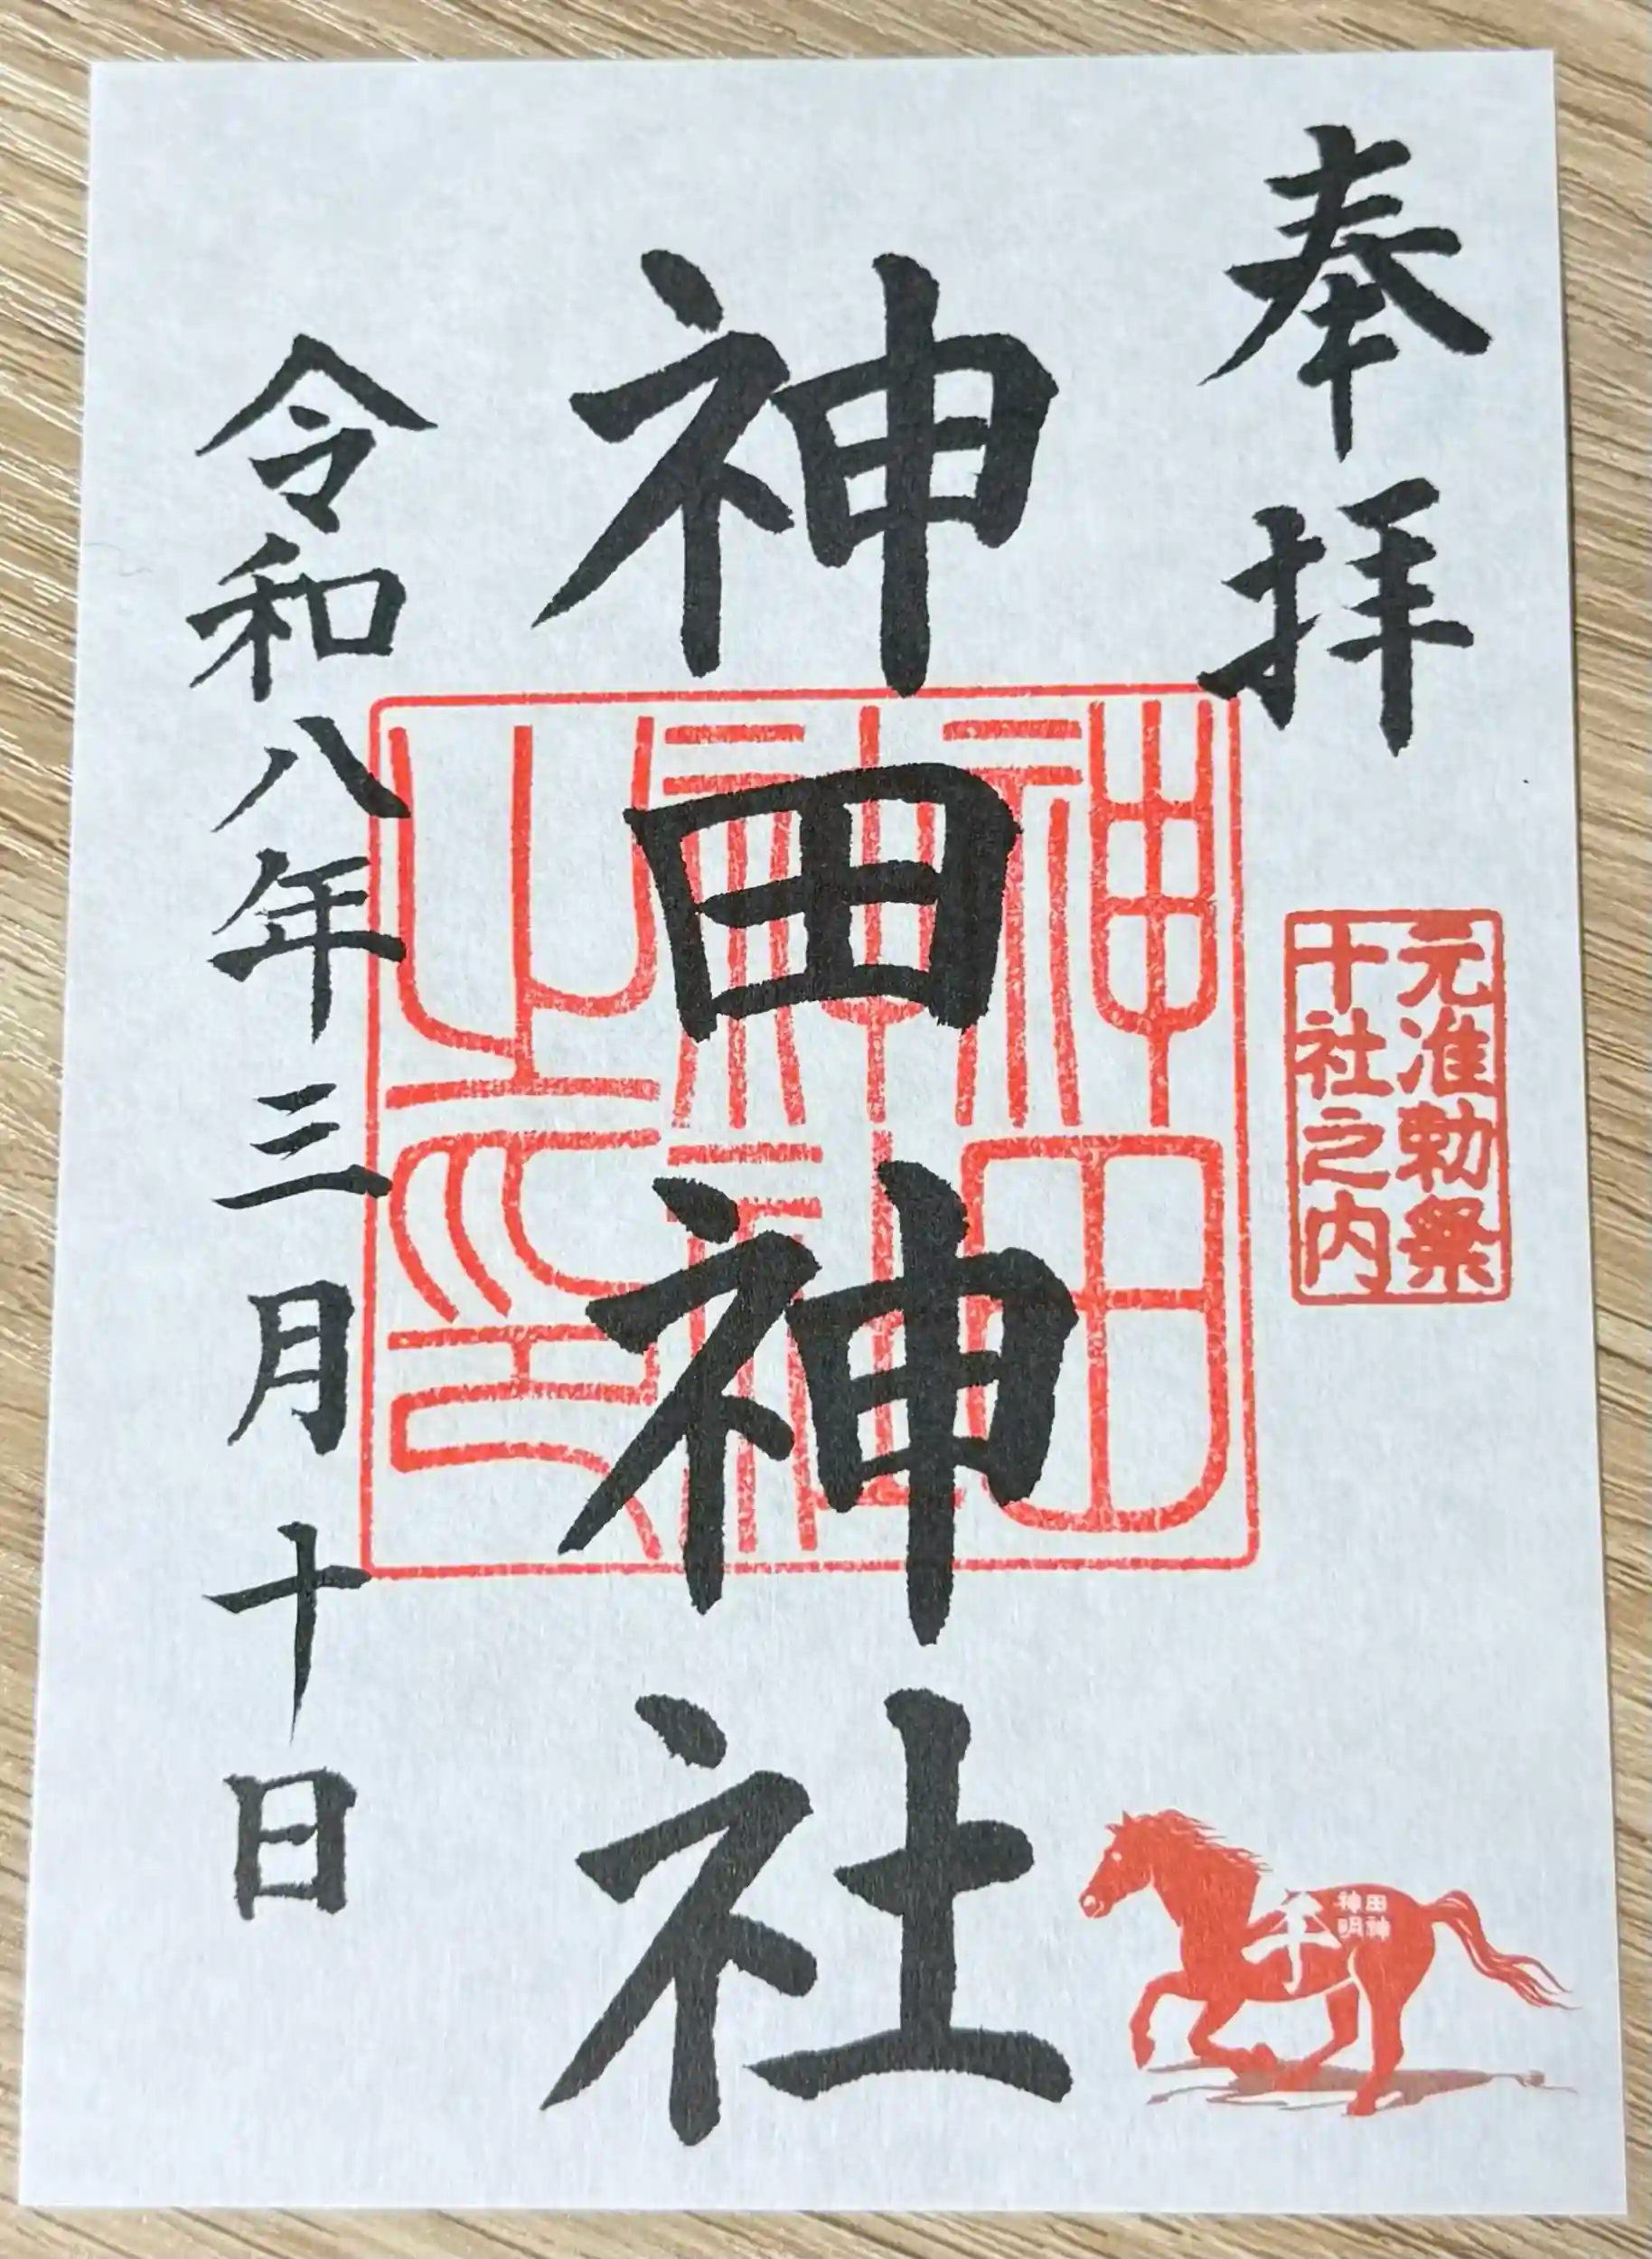 奉拝
元准勅祭
十社之内
神田神社
神田
神社
之印
令和八年三月十日
午
田神
神明